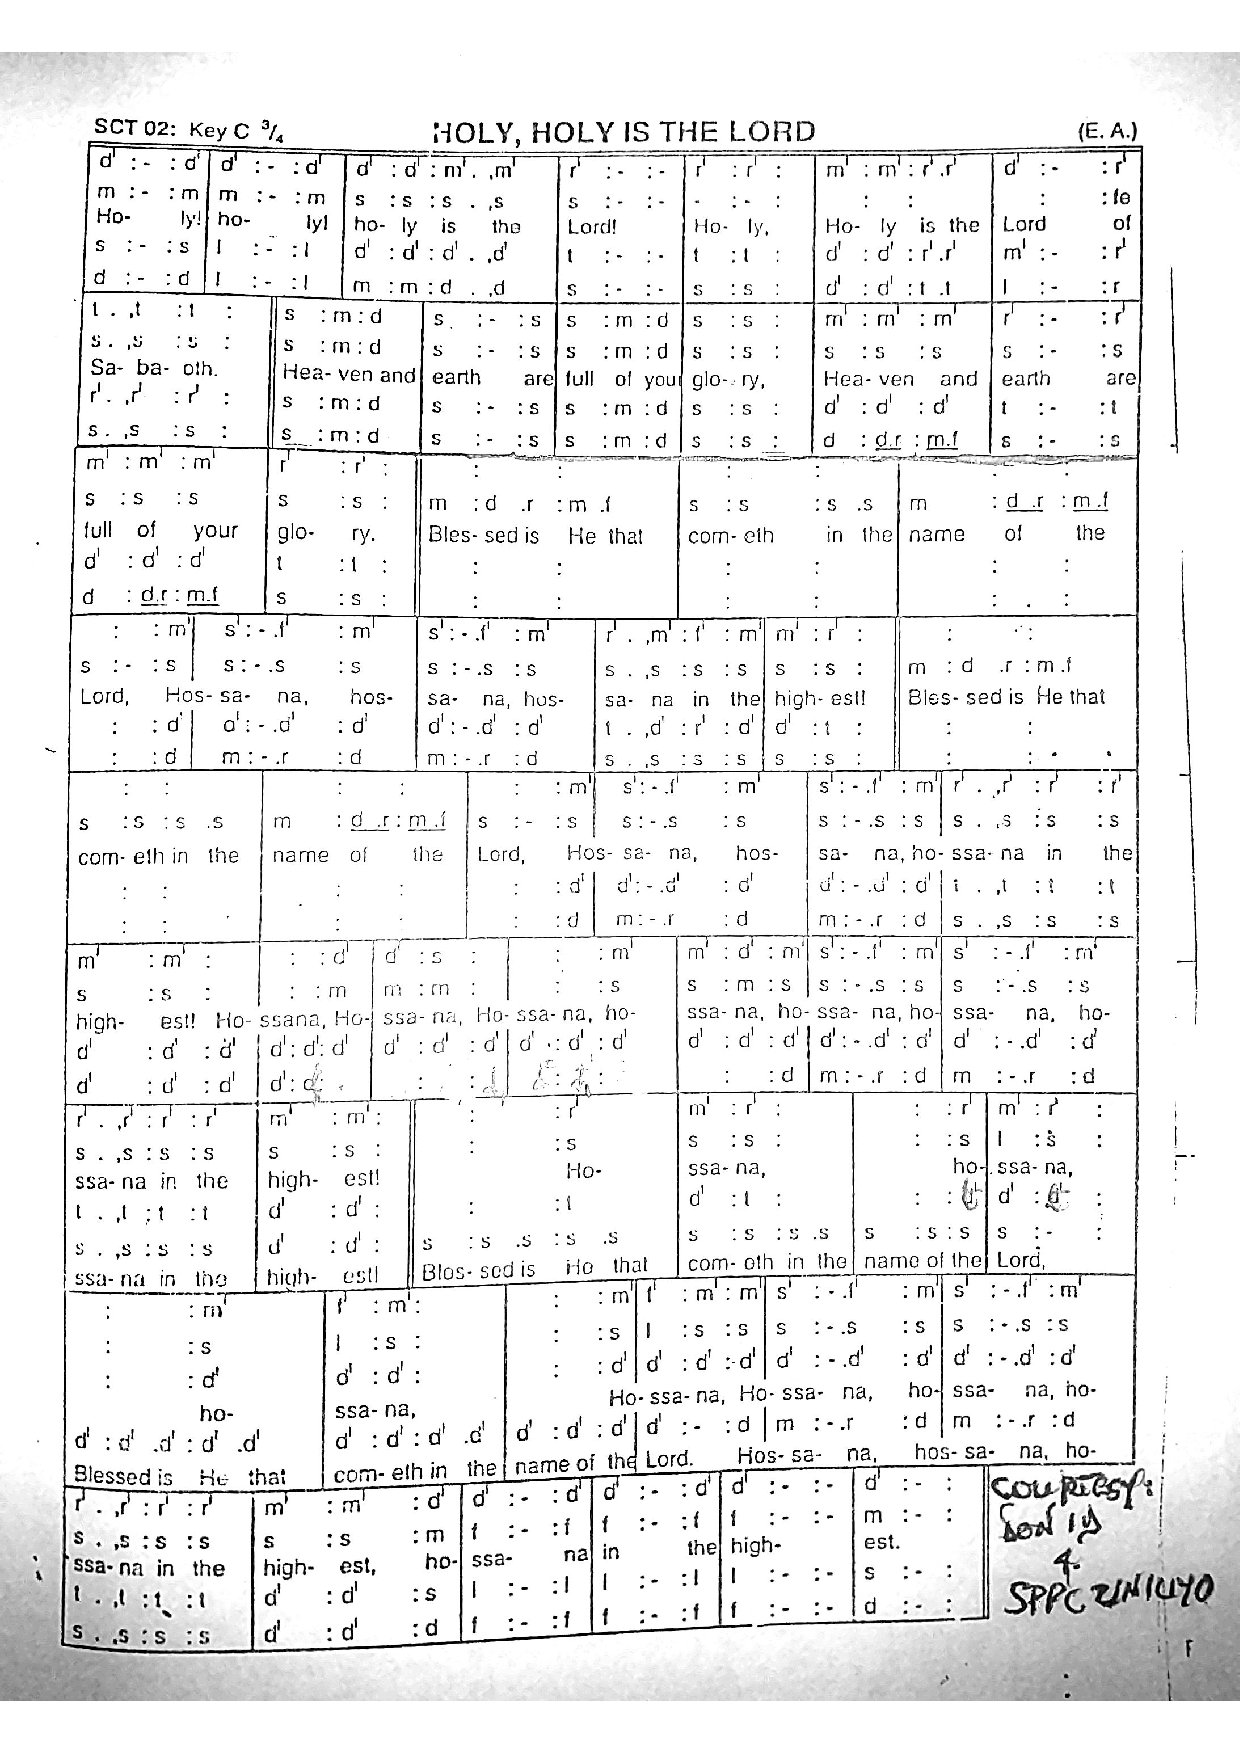 SCT 02: Key C 3/4 HOLY, HOLY IS THE LORD (E. A.)
d' :- : d' | d' :- : d' | d' : d' : m' . ,m' | r' :- :- | r' : r' : | m' : m' : r' .r' | d' :- : r'
m :- : m | m :- : m | s : s : s . ,s | s :- :- | - :- : | : : | : : fe
Ho- ly! ho- ly! ho- ly is the Lord! Ho- ly, Ho- ly is the Lord of
s :- : s | l :- : l | d' : d' : d' . ,d' | t :- :- | t : t : | d' : d' : r' .r' | m' :- : r'
d :- : d | l :- : l | m : m : d . ,d | s :- :- | s : s : | d' : d' : t .t | l :- : r
t . ,t : t : || s : m : d | s :- : s | s : m : d | s : s : | m' : m' : m' | r' :- : r'
s . ,s : s : || s : m : d | s :- : s | s : m : d | s : s : | s : s : s | s :- : s
Sa- ba- oth. Hea- ven and earth are full of you glo- ry, Hea- ven and earth are
r' . ,r' : r' : || s : m : d | s :- : s | s : m : d | s : s : | d' : d' : d' | t :- : t
s . ,s : s : || s : m : d | s :- : s | s : m : d | s : s : | d : d.r : m.f | s :- : s
m' : m' : m' | r' : r' : || : : | : : | : :
s : s : s | s : s : || m : d .r : m .f | s : s : s .s | m : d .r : m .f
full of your glo- ry. Bles- sed is He that com- eth in the name of the
d' : d' : d' | t : t : || : : | : : | : :
d : d.r : m.f | s : s : || : : | : : | : :
: : m' | s' :- .f' : m' | s' :- .f' : m' | r' . ,m' : f' : m' | m' : r' : || : :
s :- : s | s :- .s : s | s :- .s : s | s . ,s : s : s | s : s : || m : d .r : m .f
Lord, Hos- sa- na, hos- sa- na, hos- sa- na in the high- est! Bles- sed is He that
: : d' | d' :- .d' : d' | d' :- .d' : d' | t . ,d' : r' : d' | d' : t : || : :
: : d | m :- .r : d | m :- .r : d | s . ,s : s : s | s : s : || : :
: : | : : | : : m' | s' :- .f' : m' | s' :- .f' : m' | r' . ,r' : r' : r'
s : s : s .s | m : d .r : m .f | s :- : s | s :- .s : s | s :- .s : s | s . ,s : s : s
com- eth in the name of the Lord, Hos- sa- na, hos- sa- na, ho- ssa- na in the
: : | : : | : : d' | d' :- .d' : d' | d' :- .d' : d' | t . ,t : t : t
: : | : : | : : d | m :- .r : d | m :- .r : d | s . ,s : s : s
m' : m' : | : : d' | d' : s : | : : m' | m' : d' : m' | s' :- .f' : m' | s' :- .f' : m'
s : s : | : : m | m : m : | : : s | s : m : s | s :- .s : s | s :- .s : s
high- est! Ho- ssana, Ho- ssa- na, Ho- ssa- na, ho- ssa- na, ho- ssa- na, ho- ssa- na, ho-
d' : d' : d' | d' : d' : d' | d' : d' : d' | d' : d' : d' | d' : d' : d' | d' :- .d' : d' | d' :- .d' : d'
d' : d' : d' | d' : : | : : | : : | : : d | m :- .r : d | m :- .r : d
r' . ,r' : r' : r' | m' : m' : || : : r' | m' : r' : | : : r' | m' : r' :
s . ,s : s : s | s : s : || : : s | s : s : | : : s | l : s :
ssa- na in the high- est! Ho- ssa- na, ho- ssa- na,
t . ,t : t : t | d' : d' : || : : t | d' : t : | : : | d' : :
s . ,s : s : s | d' : d' : || s : s .s : s .s | s : s : s .s | s : s : s | s :- :
ssa- na in the high- est! Bles- sed is He that com- eth in the name of the Lord,
: : m' | f' : m' : | : : m' | f' : m' : m' | s' :- .f' : m' | s' :- .f' : m'
: : s | l : s : | : : s | l : s : s | s :- .s : s | s :- .s : s
: : d' | d' : d' : | : : d' | d' : d' : d' | d' :- .d' : d' | d' :- .d' : d'
ho- ssa- na, Ho- ssa- na, Ho- ssa- na, ho- ssa- na, ho-
d' : d' .d' : d' .d' | d' : d' : d' .d' | d' : d' : d' | d' :- : d | m :- .r : d | m :- .r : d
Blessed is He that com- eth in the name of the Lord. Hos- sa- na, hos- sa- na, ho-
r' . ,r' : r' : r' | m' : m' : d' | d' :- : d' | d' :- : d' | d' :- :- | d' :- :
s . ,s : s : s | s : s : m | f :- : f | f :- : f | f :- :- | m :- :
ssa- na in the high- est, ho- ssa- na in the high- est.
t . ,t : t : t | d' : d' : s | l :- : l | l :- : l | l :- :- | s :- :
s . ,s : s : s | d' : d' : d | f :- : f | f :- : f | f :- :- | d :- :
COURTESY:
SPPC